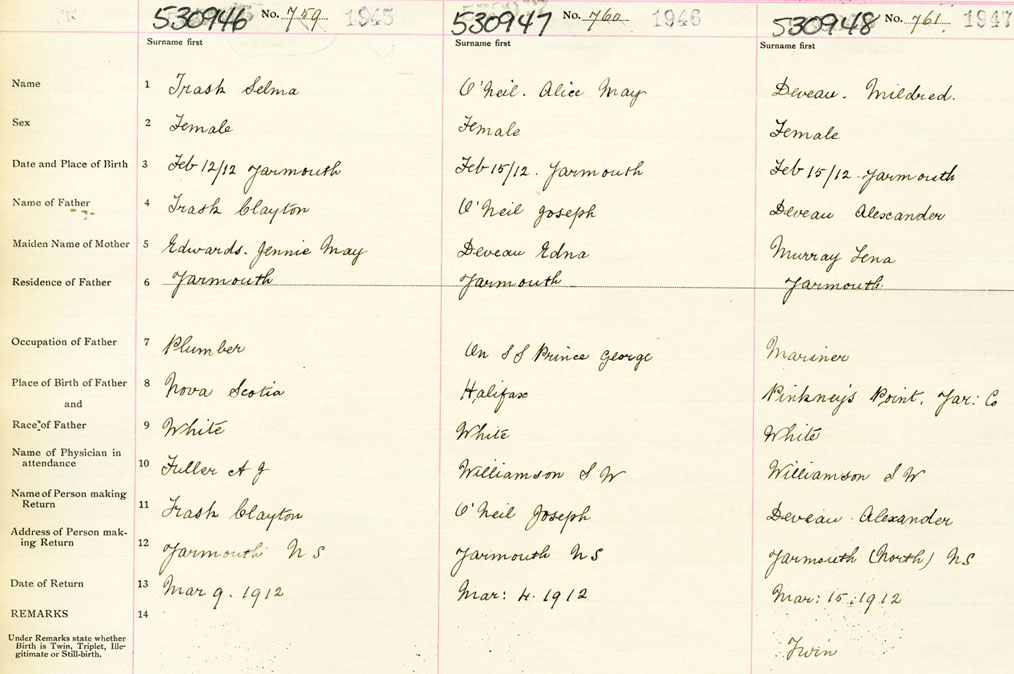 530946 No. 759 1945 530947 No. 760 1946 530948 No. 761 1947
Surname first Surname first Surname first
Name 1 Trask Selma O'Neil. Alice May Deveau. Mildred.
Sex 2 Female Female Female
Date and Place of Birth 3 Feb 12/12 Yarmouth Feb 15/12. Yarmouth Feb 15/12. Yarmouth
Name of Father 4 Trask Clayton O'Neil Joseph Deveau Alexander
Maiden Name of Mother 5 Edwards. Jennie May Deveau Edna Murray Lena
Residence of Father 6 Yarmouth Yarmouth Yarmouth
Occupation of Father 7 Plumber On SS Prince George Mariner
Place of Birth of Father 8 Nova Scotia Halifax Pinkney's Point, Yar: Co
and
Race of Father 9 White White White
Name of Physician in
attendance 10 Fuller A J Williamson S W Williamson S W
Name of Person making
Return 11 Trask Clayton O'Neil Joseph Deveau. Alexander
Address of Person mak-
ing Return 12 Yarmouth N S Yarmouth N S Yarmouth (North) NS
Date of Return 13 Mar 9. 1912 Mar: 4. 1912 Mar: 15. 1912
REMARKS 14
Under Remarks state whether
Birth is Twin, Triplet, Ille-
gitimate or Still-birth. Twin